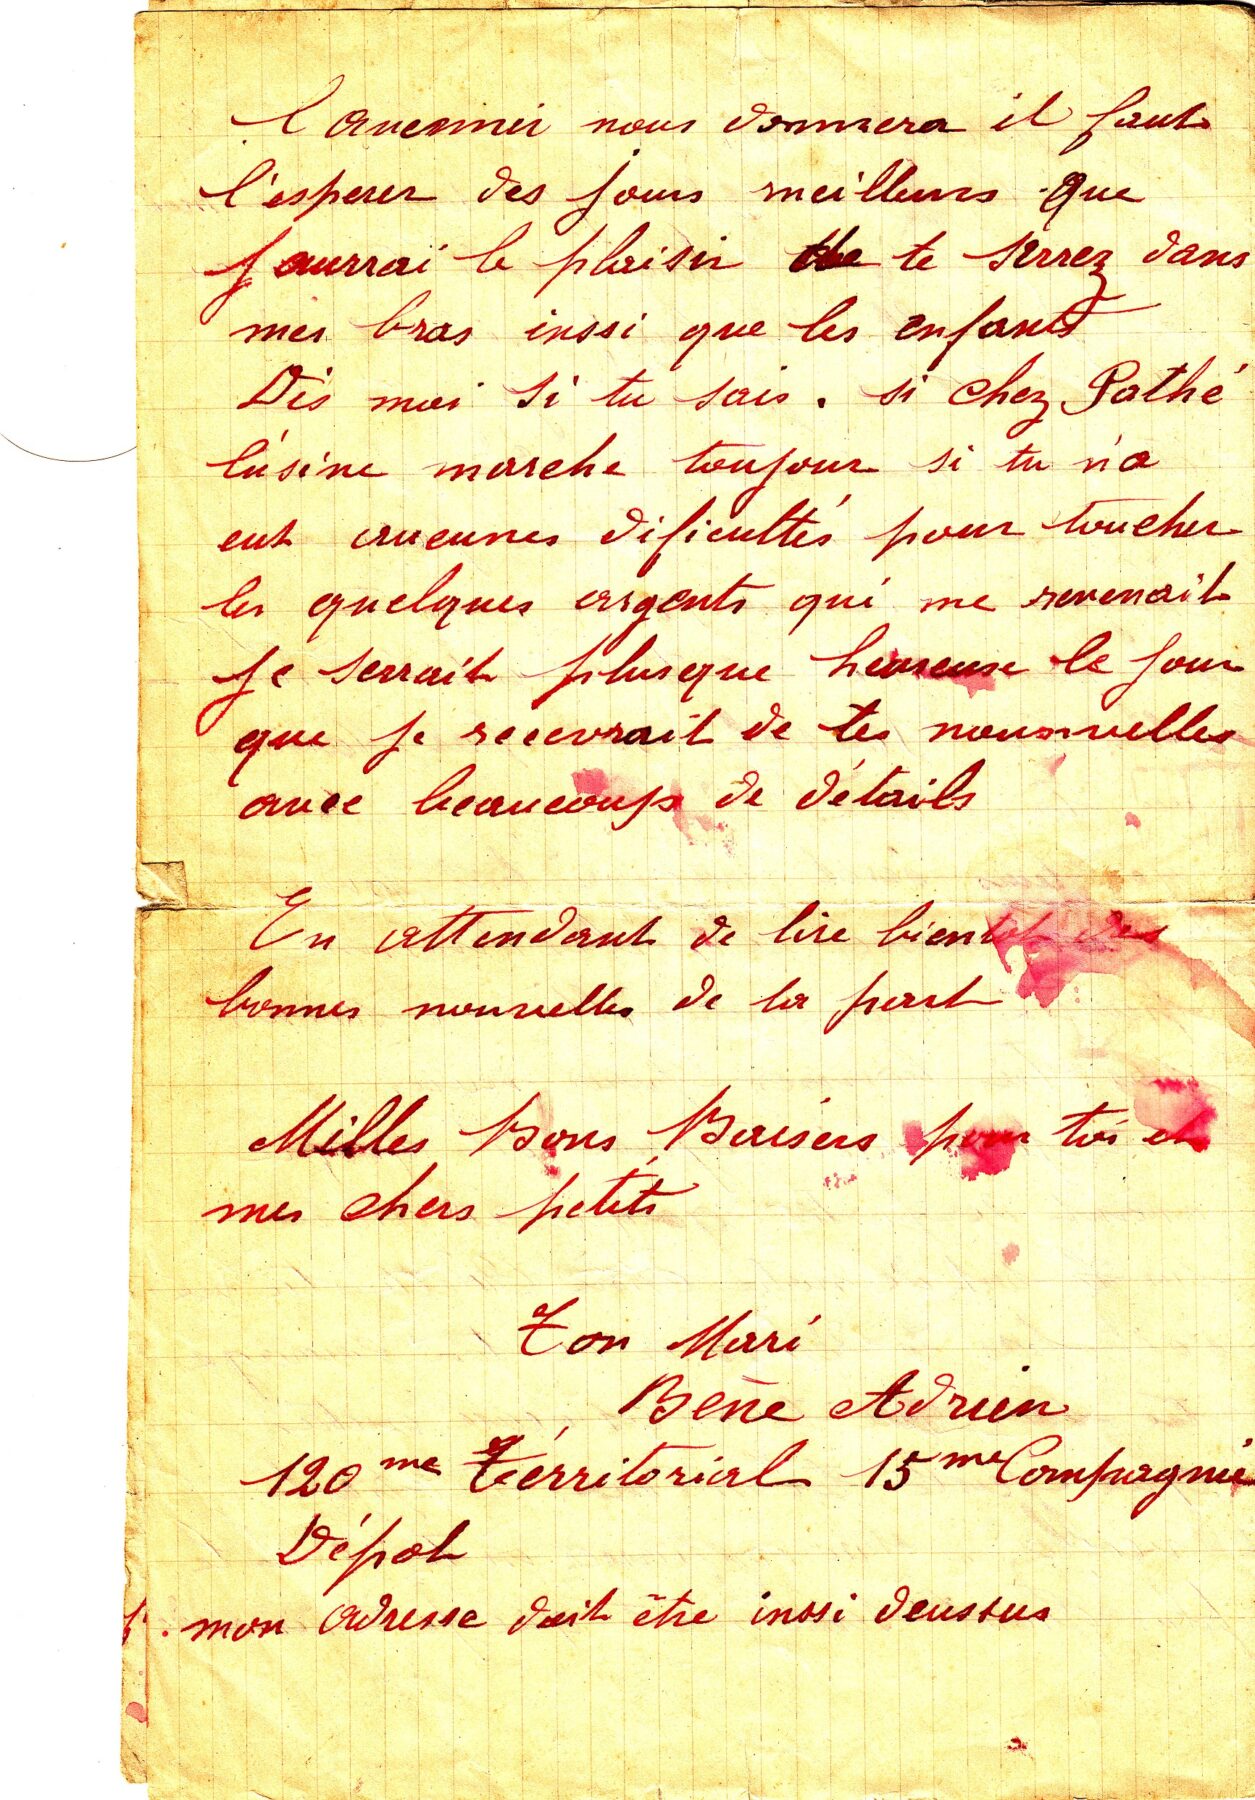 l avennir nous donnera il faut
l'esperer des jours meilleurs que
j aurrai le plaisir de te serrez dans
mes bras inssi que les enfants
Dis moi si tu sais. si chez Pathé
l'usine marche toujour si tu n'a
eut aucunes dificultés pour toucher
les quelques argents qui me revenait
je serrait plusque heureuse le jour
que je recevrait de tes nouvelles
avec beaucoups de détails
En attendant de lire bientot des
bonnes nouvelles de ta part
Milles Bons Baisers pour toi et
mes chers petits
Ton Mari
Bene Adrien
120me Térritorial 15me Compagnie
Dépot
mon adresse doit être inssi deussus